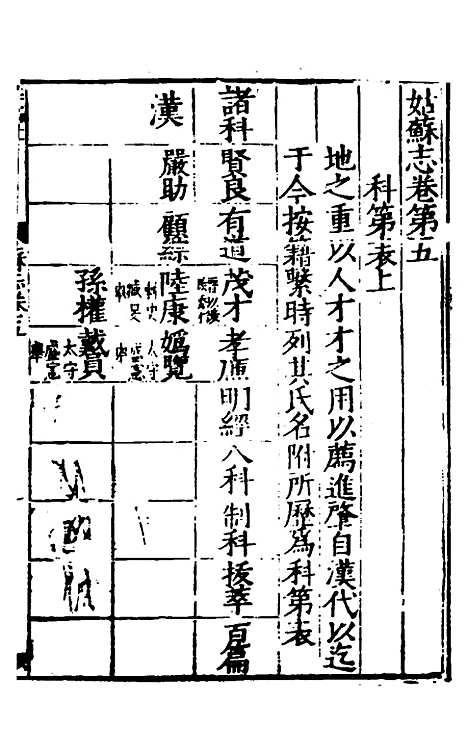 姑蘇志卷第五
科第表上
地之重以人才才之用以薦進肇自漢代以迄
于今按籍繫時列其氏名附所歷為科第表
諸科 賢良 有道 茂才 孝廉 明經 八科 制科 拔萃 百篇
漢
嚴助 顧綜 陸康 嫣覽
孫權 戴員
太守
盛憲
舉